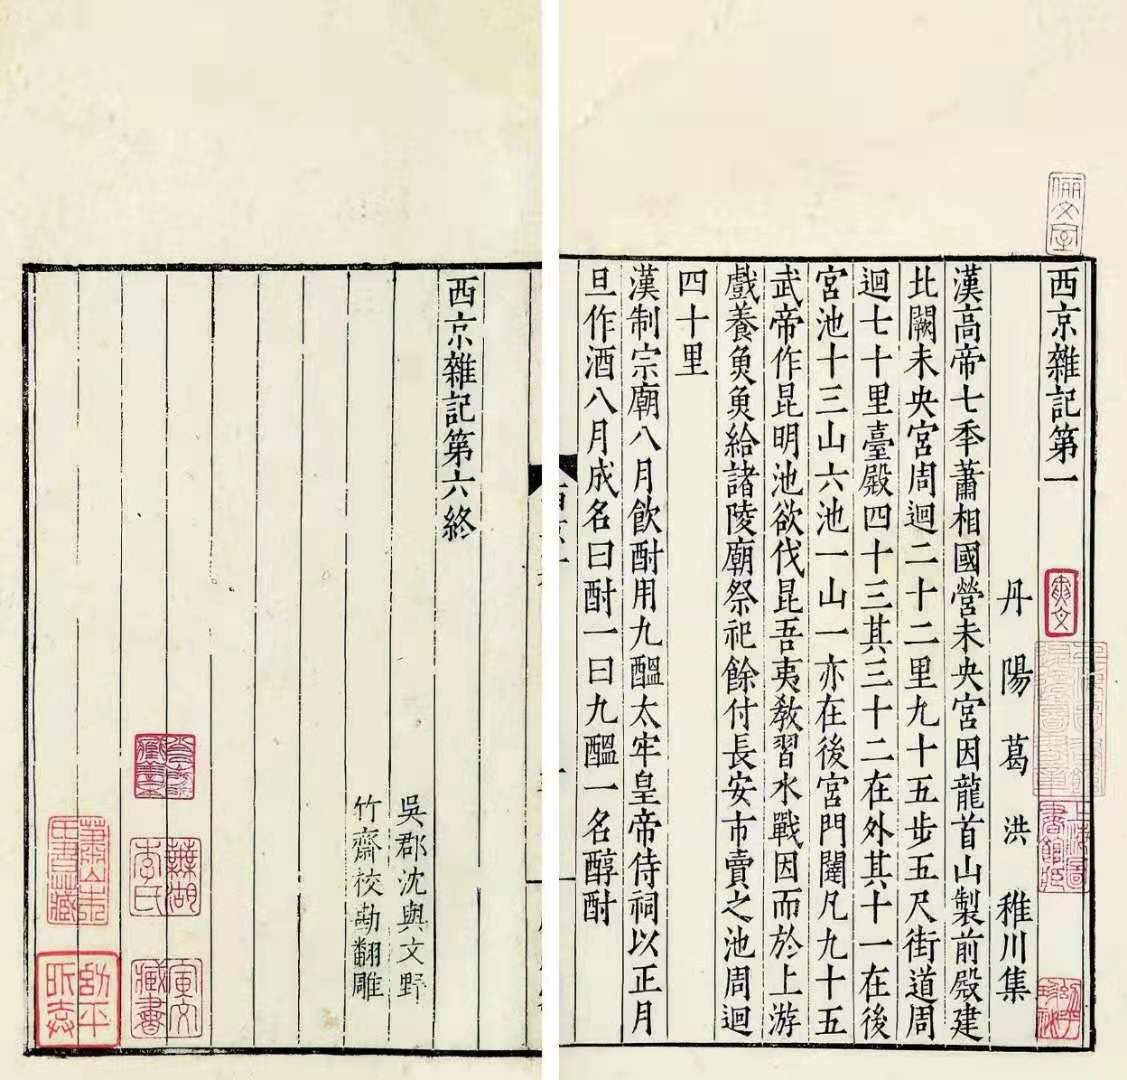 西京雜記第一
丹陽葛洪稚川集
漢高帝七季蕭相國營未央宮因龍首山製前殿建
北闕未央宮周迴二十二里九十五步五尺街道周
迴七十里臺殿四十三其三十二在外其十一在後
宮池十三山六池一山一亦在後宮門闥凡九十五
武帝作昆明池欲伐昆吾夷教習水戰因而於上游
戲養魚魚給諸陵廟祭祀餘付長安市賣之池周迴
四十里
漢制宗廟八月飲酎用九醞太牢皇帝侍祠以正月
旦作酒八月成名曰酎一曰九醞一名醇酎
西京雜記第六終
吳郡沈與文野
竹齋校勘翻雕